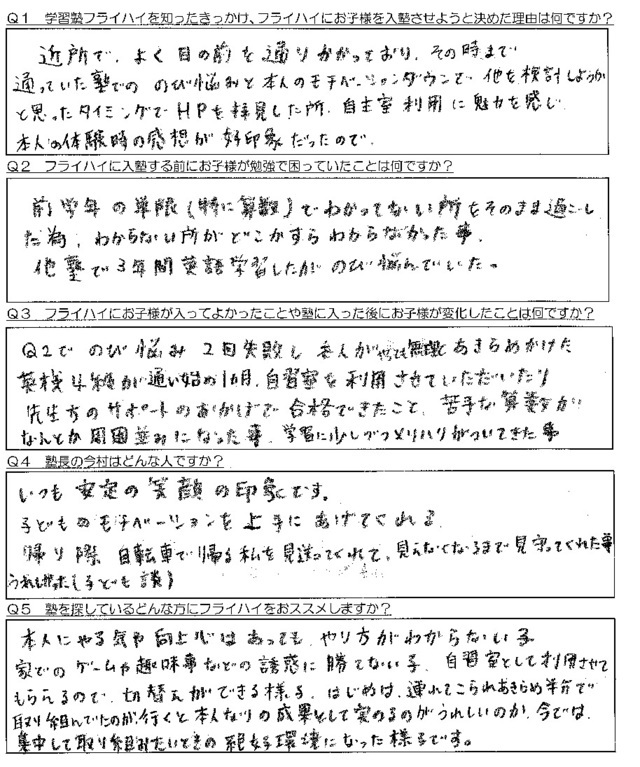 Q1 学習塾フライハイを知ったきっかけ、フライハイにお子様を入塾させようと決めた理由は何ですか?
近所で、よく目の前を通りかかっており、その時まで
通っていた塾での のび悩みと本人のモチベーションダウンで 他を検討しようか
と思ったタイミングでHPを拝見した所、自主室利用に魅力を感じ
本人の体験時の感想が好印象だったので。
Q2 フライハイに入塾する前にお子様が勉強で困っていたことは何ですか?
前学年の単限(特に算数)でわかってない所をそのまま過ごし
た為、わからない所がどこかすらわからなかった事。
他塾で3年間英語学習したがのび悩んでいた。
Q3 フライハイにお子様が入ってよかったことや塾に入った後にお子様が変化したことは何ですか?
Q2でのび悩み2回失敗し本人が無理とあきらめかけた
英検4級が通い始め1カ月、自習室を利用させていただいたり
先生方のサポートのおかげで合格できたこと、苦手な算数が
なんとか周囲並みになった事、学習に少しづつメリハリがついてきた事
Q4 塾長の今村はどんな人ですか?
いつも安定の笑顔の印象です。
子どものモチベーションを上手にあげてくれる
帰り際 自転車で帰る私を見送ってくれて、見えなくなるまで見守ってくれた事
うれしかった(子ども談)
Q5 塾を探しているどんな方にフライハイをおススメしますか?
本人にやる気や向上心はあっても、やり方がわからない子
家でのゲームや趣味事などの誘惑に勝てない子、自習室として利用させて
もらえるので、切替えができる様子、はじめは、連れてこられあきらめ半分で
取り組んでたのが、行くと本人なりの成果として実るのがうれしいのか、今では、
集中して取り組みたいときの絶好環境になった様子です。